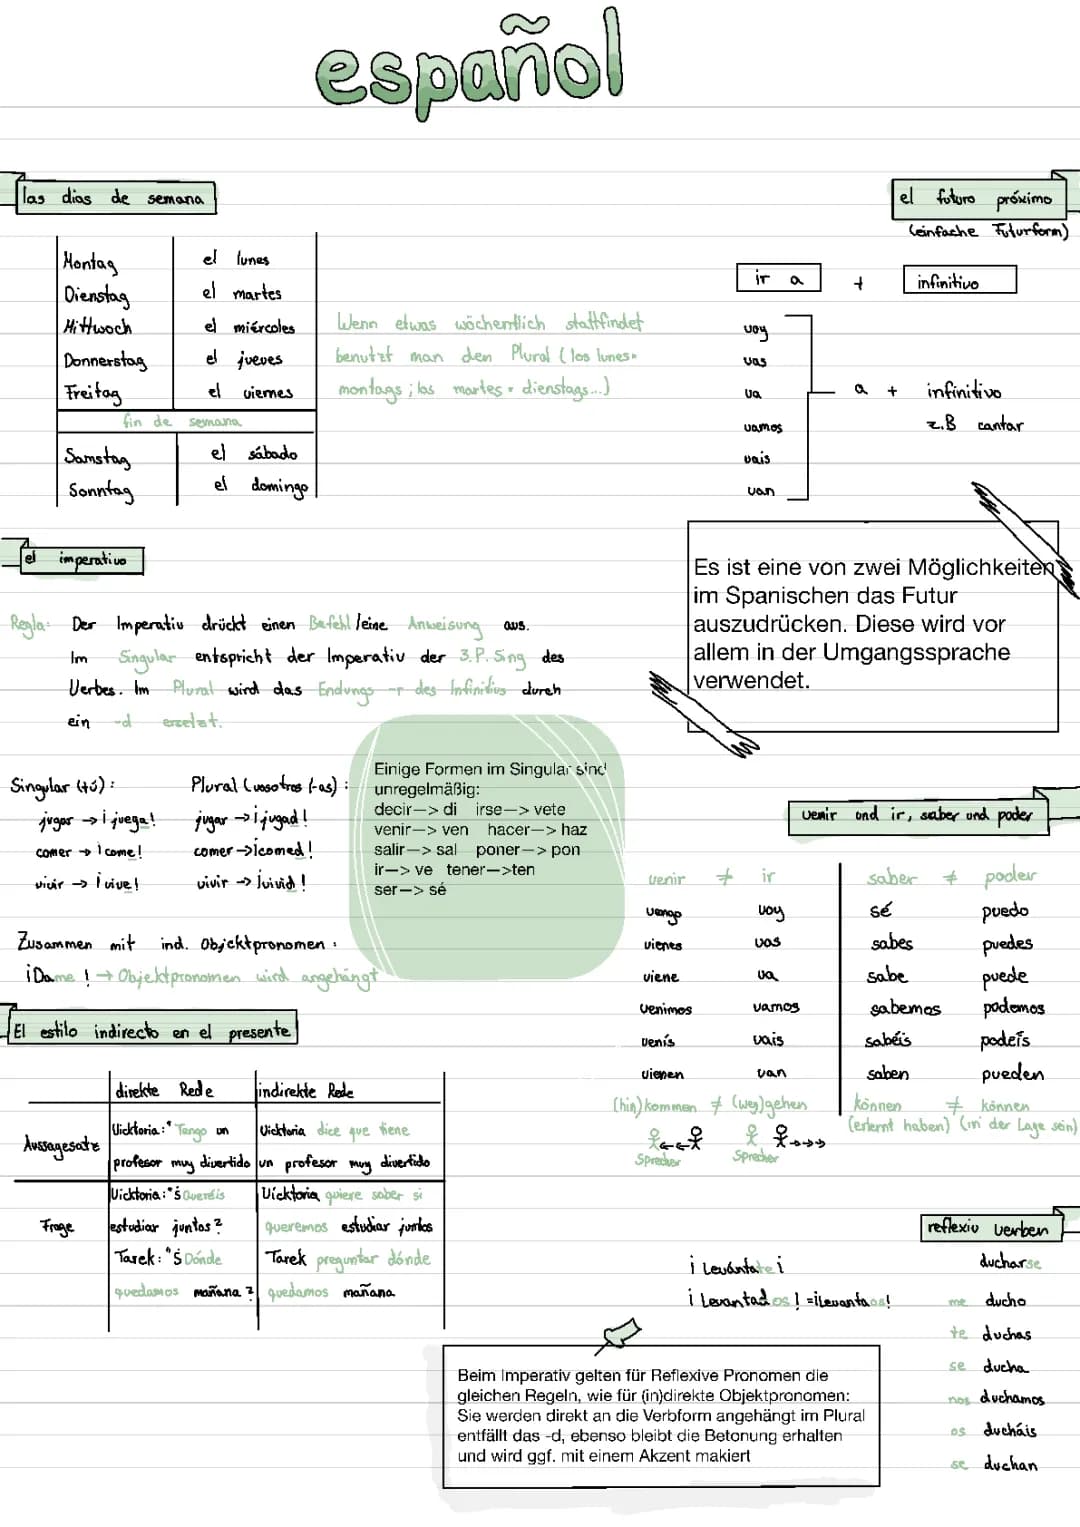 español
las dias de semana
Montag el lunes
Dienstag el martes
Mittwoch el miércoles
Donnerstag el jueves
Freitag el viernes
fin de semana
Samstag el sábado
Sonntag el domingo
Wenn etwas wöchentlich stattfindet
benutzt man den Plural (los lunes=
montags; los martes = dienstags...)
el futuro próximo
(einfache Futurform)
ir a + infinitivo
voy
vas
va
vamos
vais
van
a + infinitivo
z.B cantar
Es ist eine von zwei Möglichkeiten
im Spanischen das Futur
auszudrücken. Diese wird vor
allem in der Umgangssprache
verwendet.
el imperativo
Regla: Der Imperativ drückt einen Befehl/eine Anweisung aus.
Im Singular entspricht der Imperativ der 3.P. Sing des
Verbes. Im Plural wird das Endungs -r des Infinitivs durch
ein -d erzetzt.
Singular (tú): Plural (vosotros (-as):
jugar → ¡juega! jugar → ¡jugad!
comer → ¡come! comer → ¡comed!
vivir → ¡vive! vivir → ¡vivid!
Einige Formen im Singular sind
unregelmäßig:
decir—> di irse—> vete
venir—> ven hacer—> haz
salir—> sal poner—> pon
ir—> ve tener—>ten
ser—> sé
Zusammen mit ind. Objektpronomen:
¡Dame! → Objektpronomen wird angehängt
venir und ir, saber und poder
venir ≠ ir saber ≠ poder
vengo voy sé puedo
vienes vas sabes puedes
viene va sabe puede
venimos vamos sabemos podemos
venís vais sabéis podeís
vienen van saben pueden
(hin)kommen ≠ (weg)gehen können ≠ können
(erlernt haben) (in der Lage sein)
Sprecher Sprecher
El estilo indirecto en el presente
direkte Rede indirekte Rede
Aussagesatz
Vicktoria: "Tengo un Vicktoria dice que tiene
profesor muy divertido un profesor muy divertido
Frage
Vicktoria: "¿Queréis Vícktoria quiere saber si
estudiar juntos? queremos estudiar juntos
Tarek: "¿Dónde Tarek preguntar dónde
quedamos mañana? quedamos mañana
reflexiv verben
ducharse
me ducho
te duchas
se ducha
nos duchamos
os ducháis
se duchan
¡Levántate¡
¡Levantados! = ¡Levantaos!
Beim Imperativ gelten für Reflexive Pronomen die
gleichen Regeln, wie für (in)direkte Objektpronomen:
Sie werden direkt an die Verbform angehängt im Plural
entfällt das -d, ebenso bleibt die Betonung erhalten
und wird ggf. mit einem Akzent makiert